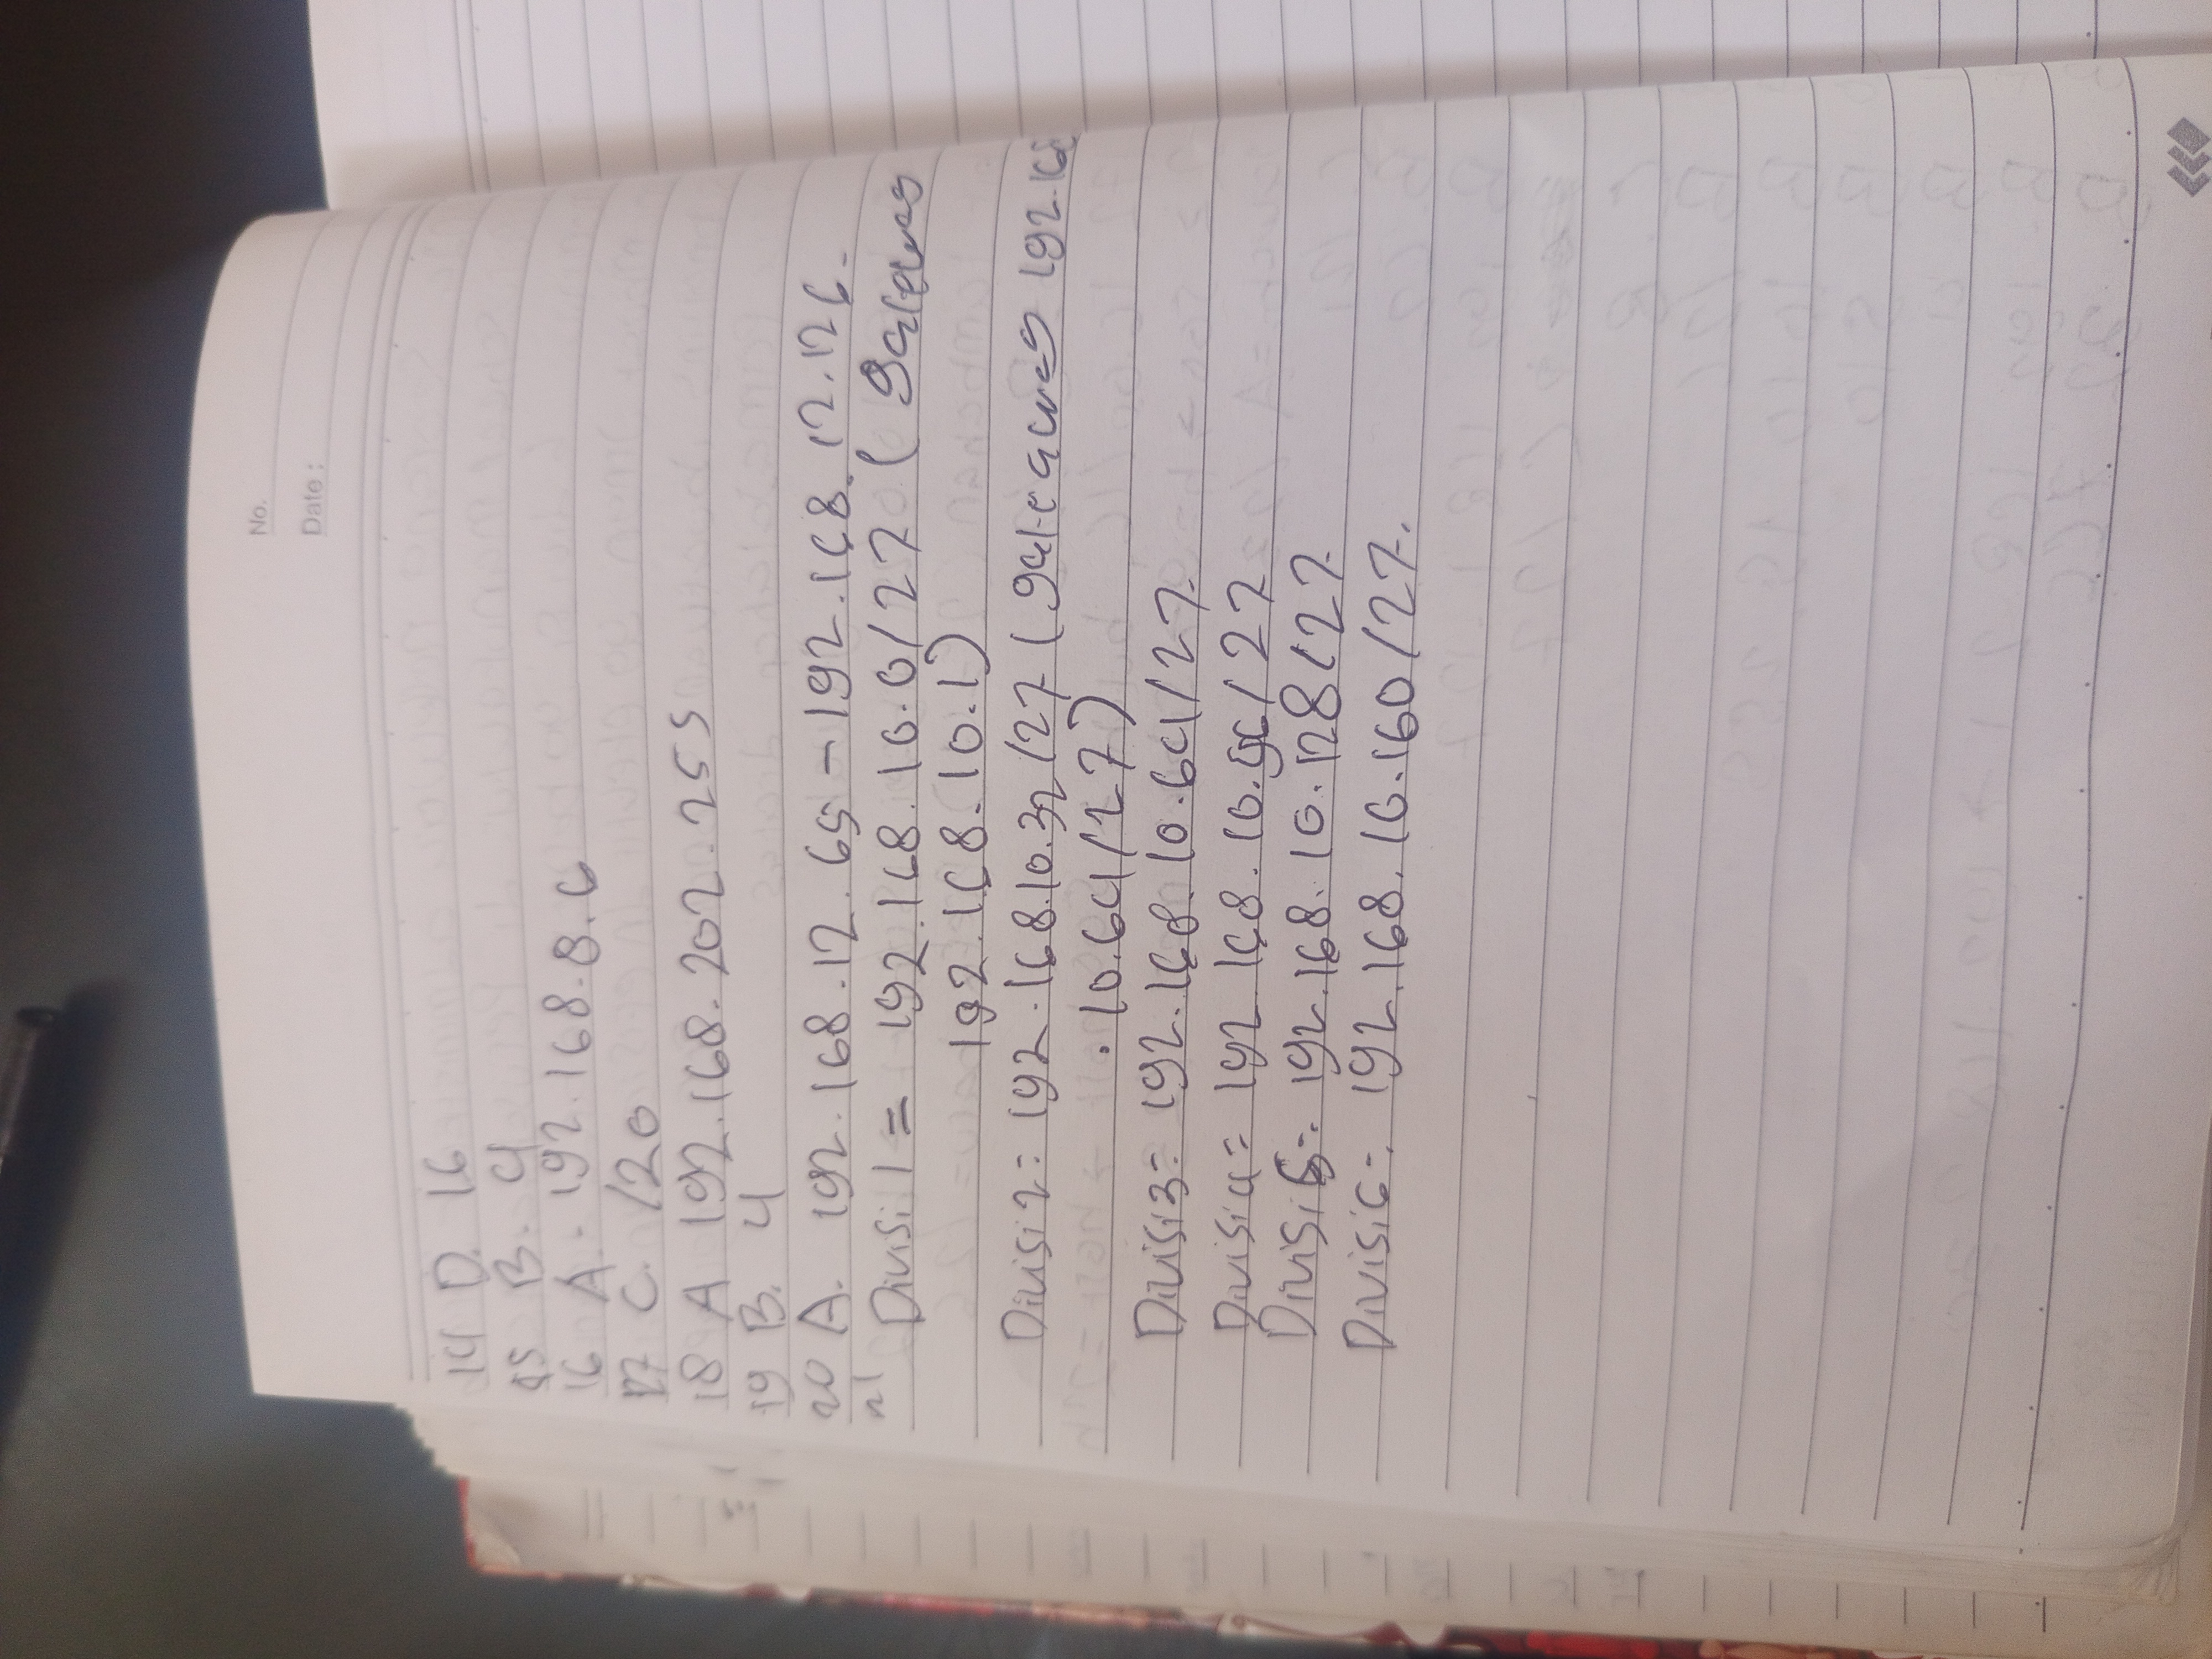 No.
Date :
14 D. 16
15 B. 4
16 A. 192.168.8.6
17 C. /20
18 A 192.168.202.255
19 B. 4
20 A. 192.168.12.65 - 192.168.12.126.
21 Divisi 1 = 192.168.10.0/27 (
192.168.10.1)
Divisi 2 = 192.168.10.32/27 ( 192.168
.10.64/27)
Divisi 3 = 192.168.10.64/27
Divisi 4 = 192.168.10.96/27
Divisi 5 = 192.168.10.128/27
Divisi 6 = 192.168.10.160/27.